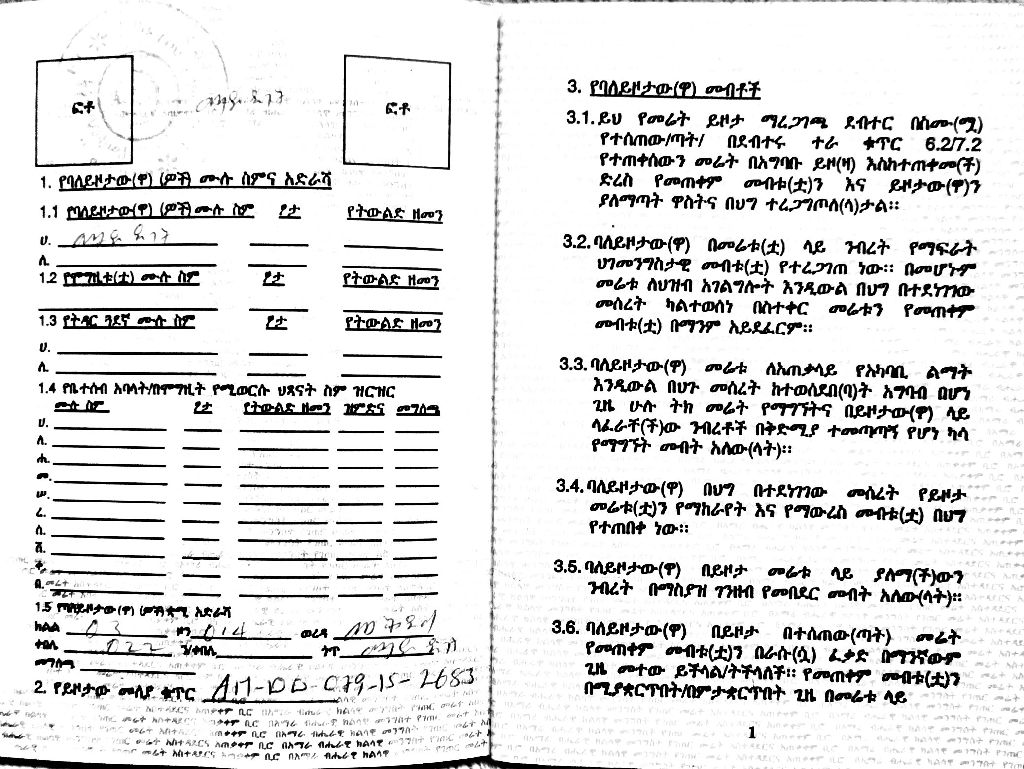 ፎቶ
ፎቶ
1. የባለይዞታው(ዋ) (ዎች) ሙሉ ስምና አድራሻ
1.1 የባለይዞታው(ዋ) (ዎች) ሙሉ ስም ፆታ የትውልድ ዘመን
ሀ.
ለ.
1.2 የሞግዚቱ(ቷ) ሙሉ ስም ፆታ የትውልድ ዘመን
1.3 የትዳር ጓደኛ ሙሉ ስም ፆታ የትውልድ ዘመን
ሀ.
ለ.
1.4 የቤተሰብ አባላት/በሞግዚት የሚወርሱ ህጻናት ስም ዝርዝር
ሙሉ ስም ፆታ የትውልድ ዘመን ዝምድና መግለጫ
ሀ.
ለ.
ሐ.
መ.
ሠ.
ረ.
ሰ.
ሸ.
ቀ.
በ.
1.5 የባለይዞታው(ዋ) (ዎች) ቋሚ አድራሻ
ክልል 03 ዞን 014 ወረዳ
ቀበሌ 022 ን/ቀበሌ ጎጥ
መግለጫ
2. የይዞታው መለያ ቁጥር AM-DD-079-15-2683
3. የባለይዞታው(ዋ) መብቶች
3.1. ይህ የመሬት ይዞታ ማረጋገጫ ደብተር በስሙ(ሟ)
የተሰጠው/ጣት/ በደብተሩ ተራ ቁጥር 6.2/7.2
የተጠቀሰውን መሬት በአግባቡ ይዞ(ዛ) እስከተጠቀመ(ች)
ድረስ የመጠቀም መብቱ(ቷ)ን እና ይዞታው(ዋ)ን
ያለማጣት ዋስትና በህግ ተረጋግጦለ(ላ)ታል።
3.2. ባለይዞታው(ዋ) በመሬቱ(ቷ) ላይ ንብረት የማፍራት
ህገመንግስታዊ መብቱ(ቷ) የተረጋገጠ ነው። በመሆኑም
መሬቱ ለህዝብ አገልግሎት እንዲውል በህግ በተደነገገው
መሰረት ካልተወሰነ በስተቀር መሬቱን የመጠቀም
መብቱ(ቷ) በማንም አይደፈርም።
3.3. ባለይዞታው(ዋ) መሬቱ ለአጠቃላይ የአካባቢ ልማት
እንዲውል በህጉ መሰረት ከተወሰደበ(ባ)ት አግባብ በሆነ
ጊዜ ሁሉ ትክ መሬት የማግኘትና በይዞታው(ዋ) ላይ
ላፈራቸ(ች)ው ንብረቶች በቅድሚያ ተመጣጣኝ የሆነ ካሳ
የማግኘት መብት አለው(ላት)።
3.4. ባለይዞታው(ዋ) በህግ በተደነገገው መሰረት የይዞታ
መሬቱ(ቷ)ን የማከራየት እና የማውረስ መብቱ(ቷ) በህግ
የተጠበቀ ነው።
3.5. ባለይዞታው(ዋ) በይዞታ መሬቱ ላይ ያለማ(ች)ውን
ንብረት በማስያዝ ገንዘብ የመበደር መብት አለው(ላት)።
3.6. ባለይዞታው(ዋ) በይዞታ በተሰጠው(ጣት) መሬት
የመጠቀም መብቱ(ቷ)ን በራሱ(ሷ) ፈቃድ በማንኛውም
ጊዜ መተው ይችላል/ትችላለች። የመጠቀም መብቱ(ቷ)ን
በሚያቋርጥበት/በምታቋርጥበት ጊዜ በመሬቱ ላይ
1